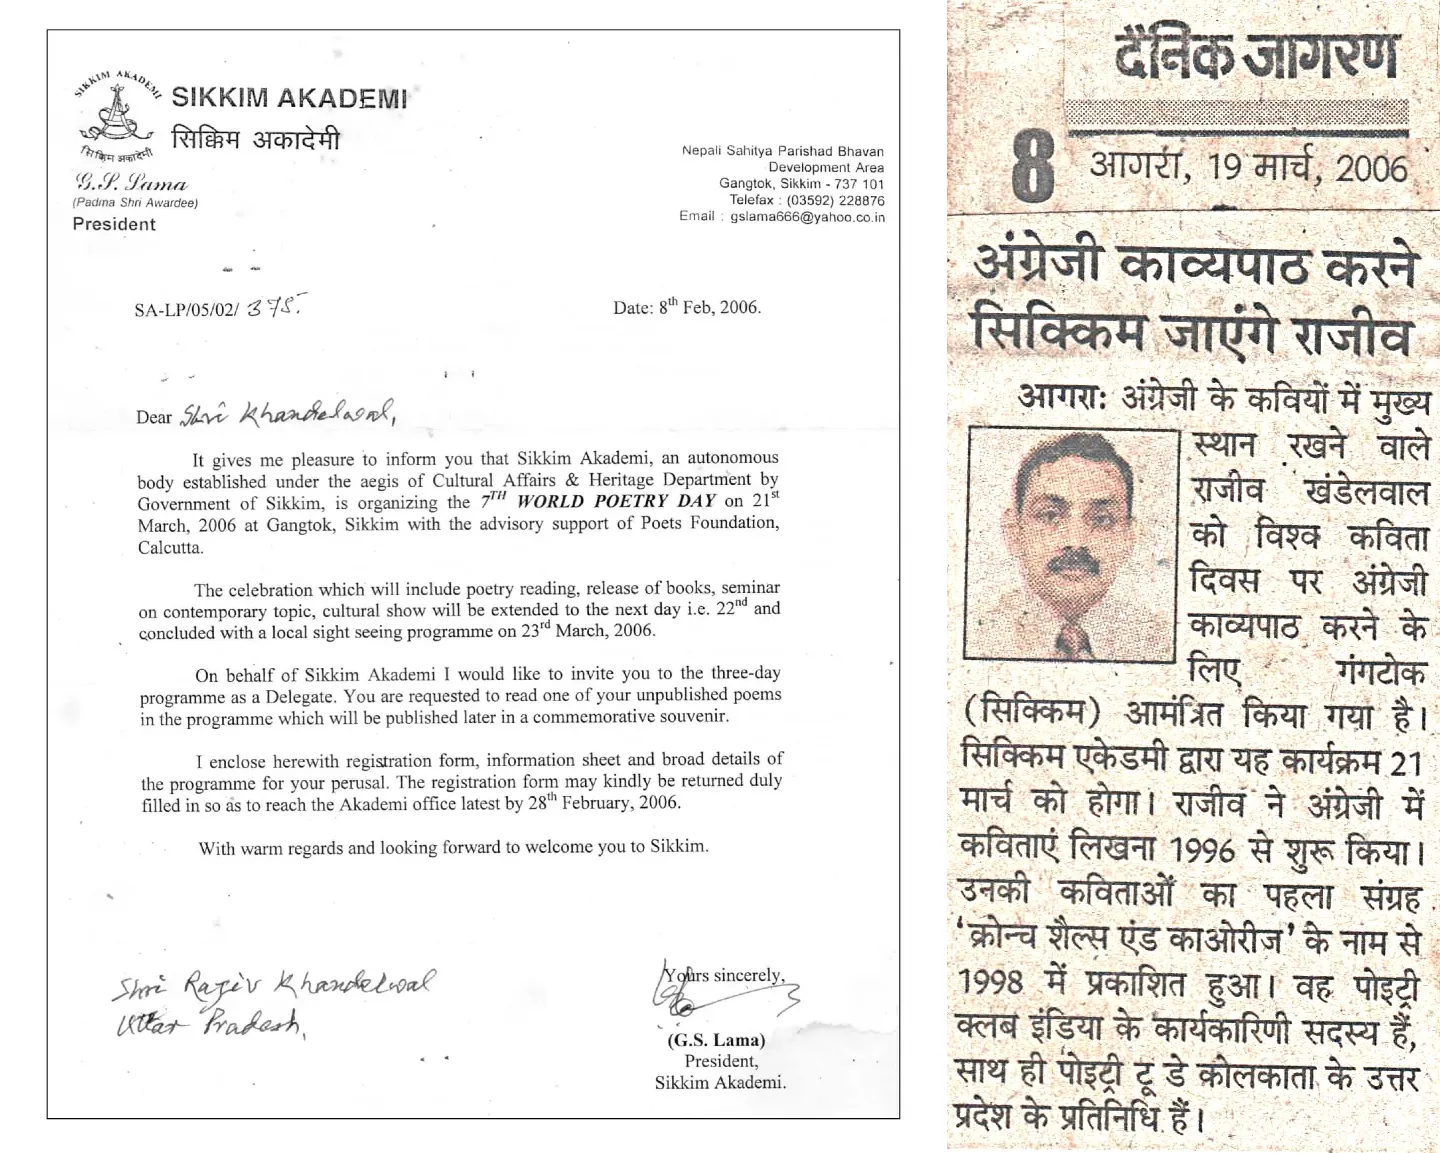 SIKKIM AKADEMI
सिक्किम अकादेमी
SIKKIM AKADEMI
सिक्किम अकादेमी
G.S. Lama
(Padma Shri Awardee)
President
Nepali Sahitya Parishad Bhavan
Development Area
Gangtok, Sikkim - 737 101
Telefax : (03592) 228876
Email : gslama666@yahoo.co.in
SA-LP/05/02/ 375.
Date: 8th Feb, 2006.
Dear Shri Khandelwal,
It gives me pleasure to inform you that Sikkim Akademi, an autonomous
body established under the aegis of Cultural Affairs & Heritage Department by
Government of Sikkim, is organizing the 7TH WORLD POETRY DAY on 21st
March, 2006 at Gangtok, Sikkim with the advisory support of Poets Foundation,
Calcutta.
The celebration which will include poetry reading, release of books, seminar
on contemporary topic, cultural show will be extended to the next day i.e. 22nd and
concluded with a local sight seeing programme on 23rd March, 2006.
On behalf of Sikkim Akademi I would like to invite you to the three-day
programme as a Delegate. You are requested to read one of your unpublished poems
in the programme which will be published later in a commemorative souvenir.
I enclose herewith registration form, information sheet and broad details of
the programme for your perusal. The registration form may kindly be returned duly
filled in so as to reach the Akademi office latest by 28th February, 2006.
With warm regards and looking forward to welcome you to Sikkim.
Shri Rajiv Khandelwal
Uttar Pradesh,
Yours sincerely,
(G.S. Lama)
President,
Sikkim Akademi.
दैनिक जागरण
8 आगरा, 19 मार्च, 2006
अंग्रेजी काव्यपाठ करने
सिक्किम जाएंगे राजीव
आगरा: अंग्रेजी के कवियों में मुख्य
स्थान रखने वाले
राजीव खंडेलवाल
को विश्व कविता
दिवस पर अंग्रेजी
काव्यपाठ करने के
लिए गंगटोक
(सिक्किम) आमंत्रित किया गया है।
सिक्किम एकेडमी द्वारा यह कार्यक्रम 21
मार्च को होगा। राजीव ने अंग्रेजी में
कविताएं लिखना 1996 से शुरू किया।
उनकी कविताओं का पहला संग्रह
'क्रोन्च शैल्स एंड काओरीज' के नाम से
1998 में प्रकाशित हुआ। वह पोइट्री
क्लब इंडिया के कार्यकारिणी सदस्य हैं,
साथ ही पोइट्री टू डे कोलकाता के उत्तर
प्रदेश के प्रतिनिधि हैं।